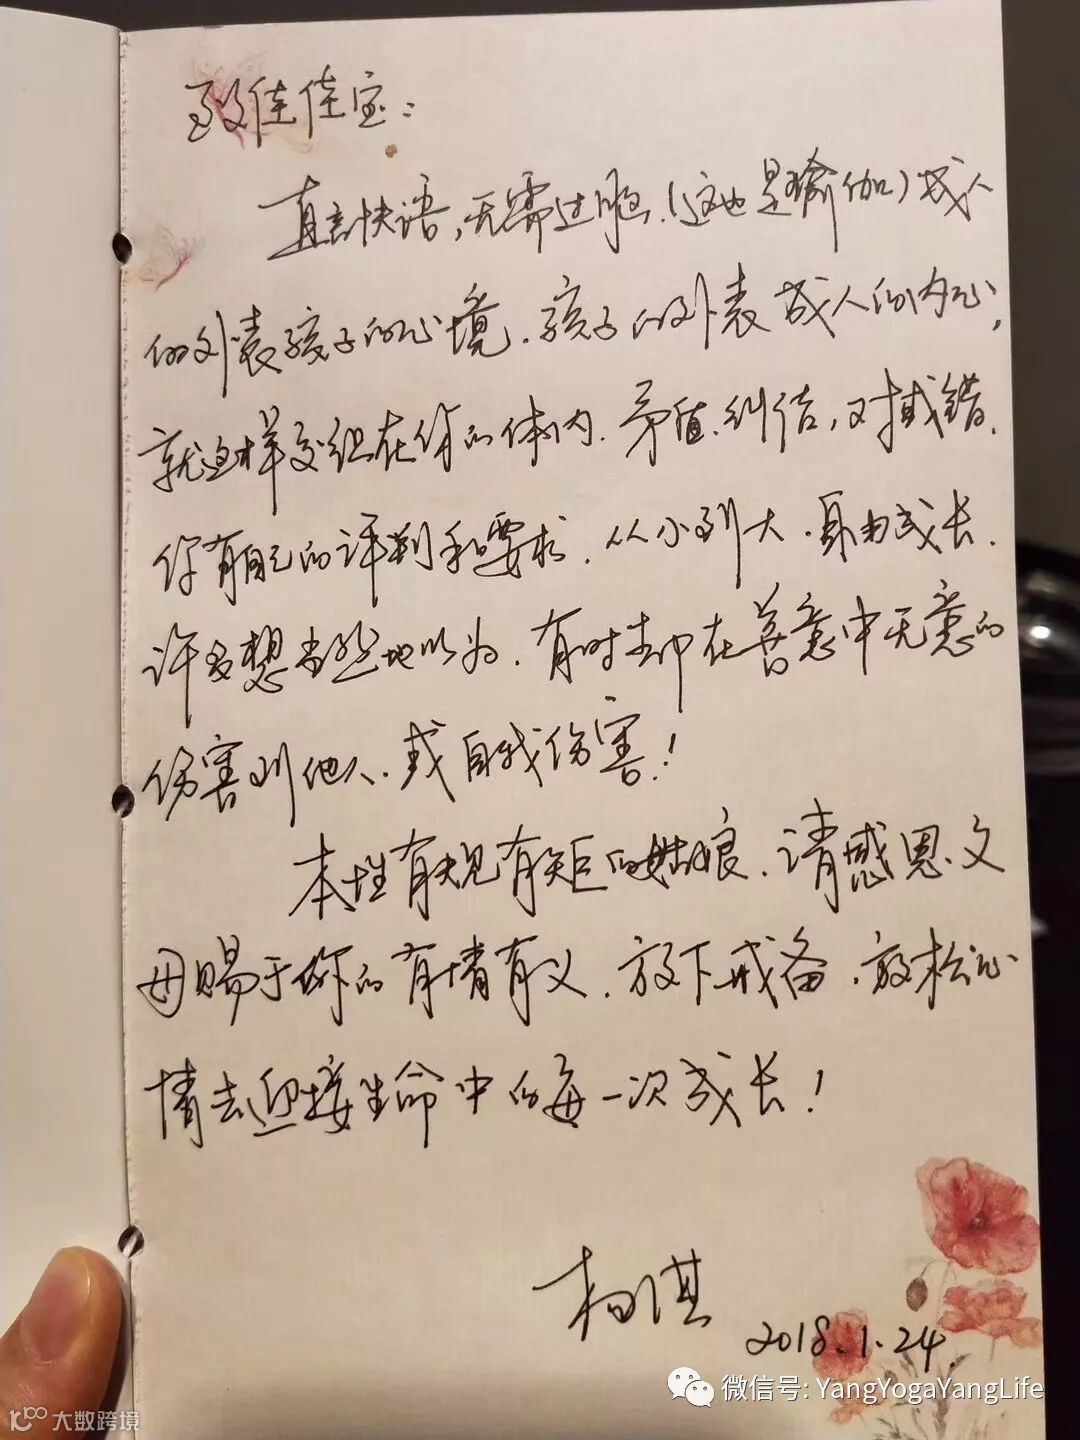 致佳佳宝：
直言快语，无需过脑.（这也是瑜伽）成人
的外表孩子的心境.孩子的外表成人的内心，
就这样交织在你的体内.矛盾.纠结，对或错.
你有自己的评判和要求.从小到大.自由成长.
许多想当然地以为.有时却在善意中无意的
伤害到他人.或自我伤害！
本性有规有矩的姑娘.请感恩父
母赐于你的有情有义.放下戒备.放松心
情去迎接生命中的每一次成长！
淇
2018.1.24
微信号: YangYogaYangLife
大数跨境